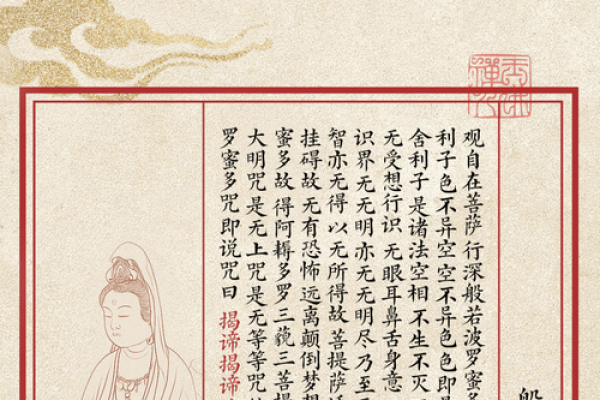 般
观自在菩萨行深般若波罗蜜多
利子色不异空空不异色色即是
舍利子是诸法空相不生不灭
无受想行识 无眼耳鼻舌身意
识界无无明亦无无明尽乃至
智亦无得以无所得故菩提萨
挂碍故无有恐怖远离颠倒梦想
蜜多故得阿耨多罗三藐三菩提
大明咒是无上咒是无等等咒
罗蜜多咒即说咒曰 揭谛揭谛